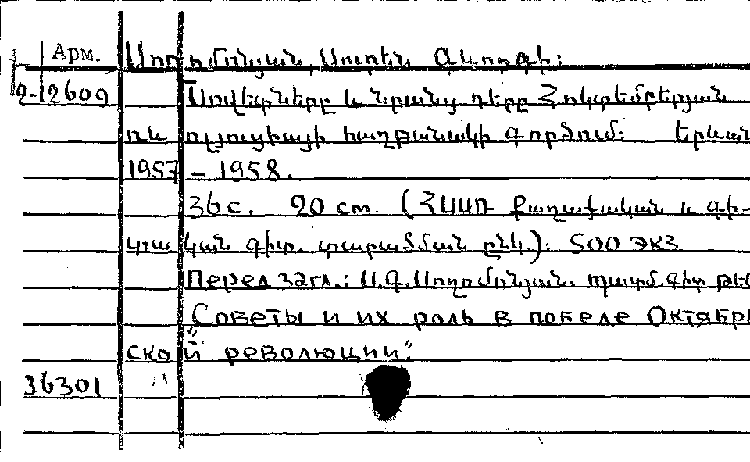 Арм. Սողոմոնյան, Սուրեն Գևորգի:
2-12609 Սովետները և նրանց դերը Հոկտեմբերյան
ռևոլյուցիայի հաղթանակի գործում: Երևան
1957 – 1958.
36 с. 20 cm. (ՀՍՍՌ քաղաքական և գի-
տական գիտ. տարածման ընկ.): 500 экз
Перед загл.: Ս. Գ. Սողոմոնյան. պատմ. գիտ.
"Советы и их роль в победе Октябрь
ской революции".
36301